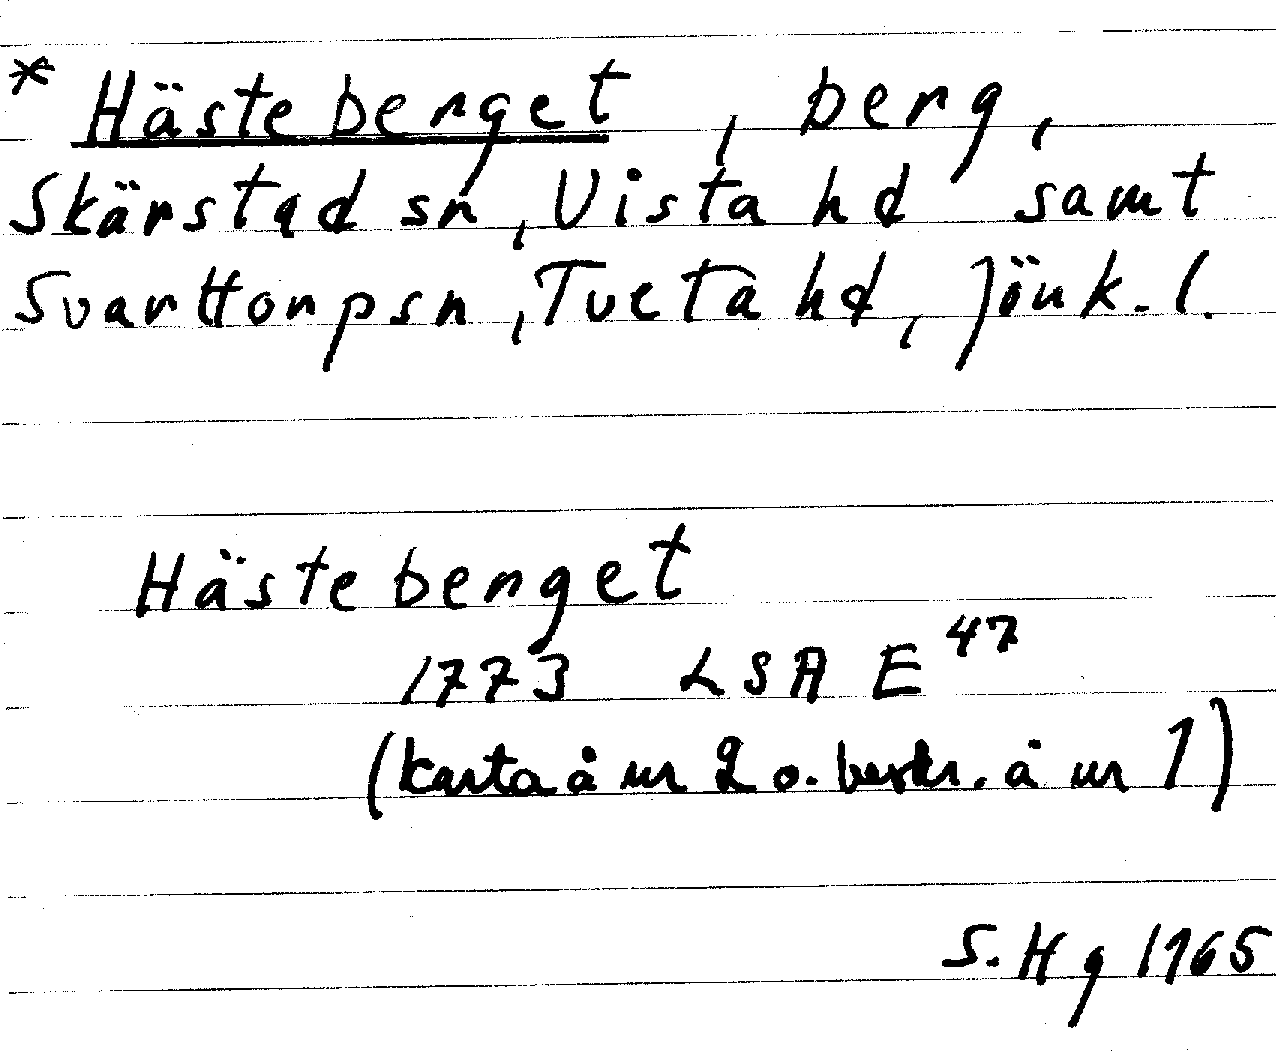 * Hästeberget, berg,
Skärstad sn, Vista hd samt
Svarttorp sn, Tveta hd, Jönk. l.
Hästeberget
1773 LSA E 47
(karta å nr 2 o. beskr. å nr 1)
S. Hg 1965